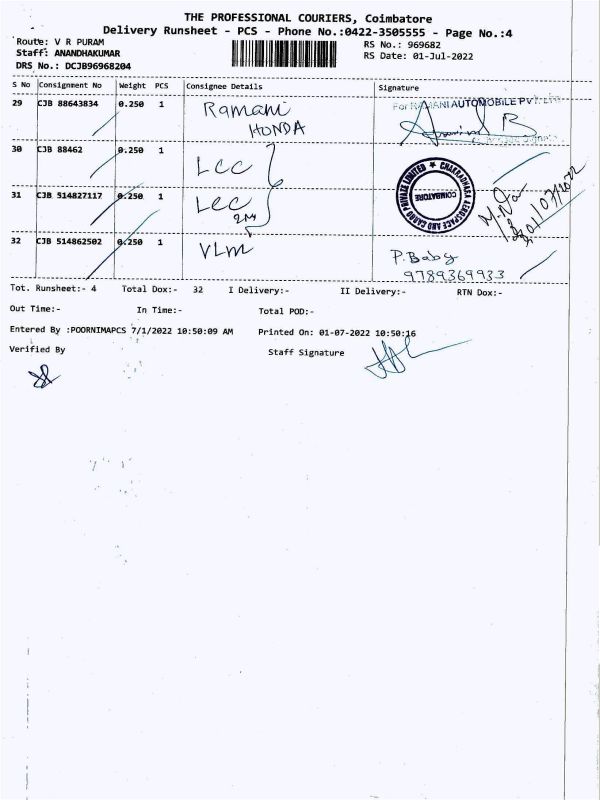 THE PROFESSIONAL COURIERS, Coimbatore
Delivery Runsheet - PCS - Phone No.:0422-3505555 - Page No.:4
Route: V R PURAM
RS No.: 969682
Staff: ANANDHAKUMAR
RS Date: 01-Jul-2022
DRS No.: DCJB96968204
S No Consignment No Weight PCS Consignee Details Signature
29 CJB 88643834 0.250 1 Ramani For RAMANI AUTOMOBILE PVT. LTD
HONDA
30 CJB 88462 0.250 1 LCC
31 CJB 514827117 0.250 1 LCC CHAKRADHARA AEROSPACE AND CARGO PRIVATE LIMITED ★ COIMBATORE
32 CJB 514862502 0.250 1 VLM P. Baby
9789369933
Tot. Runsheet:- 4 Total Dox:- 32 I Delivery:- II Delivery:- RTN Dox:-
Out Time:- In Time:- Total POD:-
Entered By :POORNIMAPCS 7/1/2022 10:50:09 AM Printed On: 01-07-2022 10:50:16
Verified By Staff Signature